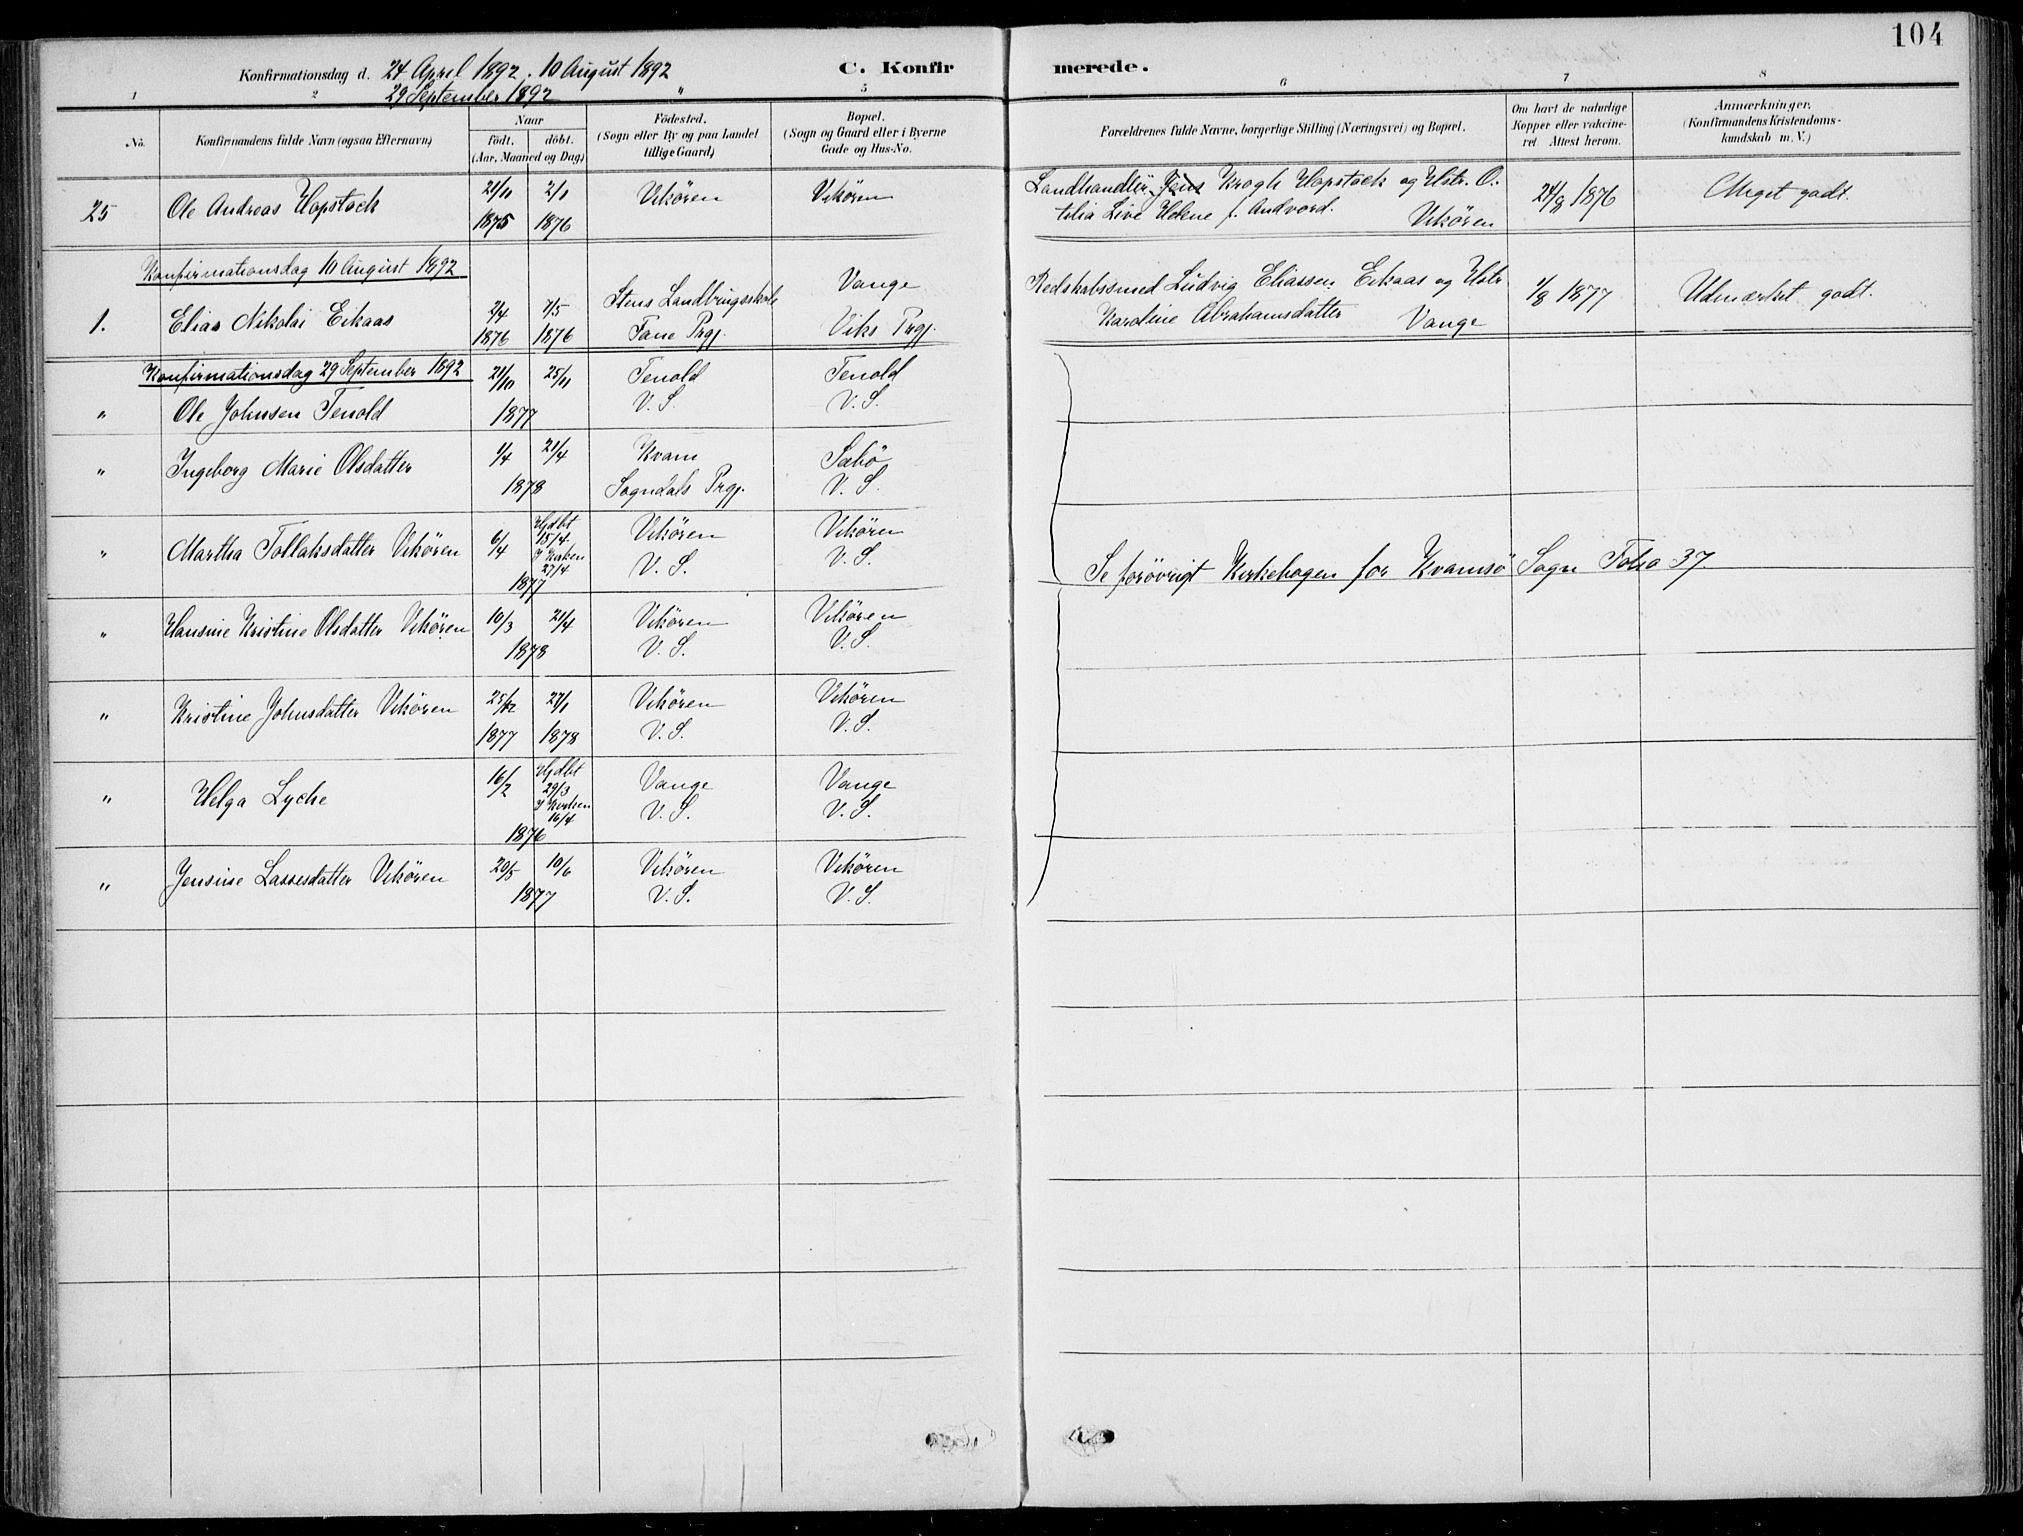 104
Konfirmationsdag d. 24 April 1892. 10 August 1892
29 September 1892
C. Konfirmerede.
1 2 " 5 6 7 8
No. Konfirmandens fulde Navn (ogsaa Efternavn) Naar født. døbt. (Aar, Maaned og Dag) Fødested. (Sogn eller By og paa Landet tillige Gaard) Bopæl. (Sogn og Gaard eller i Byerne Gade og Hus-No. Forældrenes fulde Navne, borgerlige Stilling (Næringsvei) og Bopæl. Om havt de naturlige Kopper eller vakcineret. Attest herom. Anmærkninger. (Konfirmandens Kristendomskundskab m. V.)
25 Ole Andreas Hopstock 21/11 1875 2/1 1876 Vikøren Vikøren Landhandler Jens Krogh Hopstock og Hstr. O-
tilia Live Helene f. Andvord. Vikøren 24/8 1876 Meget godt.
Konfirmationsdag 10 August 1892
1. Elias Nikolai Eikaas 2/4 1876 7/5 1876 Stens Landbrugsskole Fane Prgj. Vange Viks Prgj. Redskabssmed Ludvig Eliassen Eikaas og Hstr
Karoline Abrahamsdatter Vange 1/8 1877 Udmærket godt.
Konfirmationsdag 29 September 1892
" Ole Johnsen Tenold 21/10 25/11 1877 Tenold V. S. Tenold V. S.
" Ingeborg Marie Olsdatter 1/4 21/4 1878 Kvam Sogndals Prgj. Sæbø V. S.
" Martha Tollaksdatter Vikøren 6/4 Hjdbt 15/4 I Kirken 27/4 1877 Vikøren V. S. Vikøren V. S.
Se forøvrigt Kirkebogen for Kvamsø Sogn Folio 37.
" Hansine Kristine Olsdatter Vikøren 10/3 21/4 1878 Vikøren V. S. Vikøren V. S.
" Kristine Johnsdatter Vikøren 25/12 1877 27/1 1878 Vikøren V. S. Vikøren V. S.
" Helga Lyche 16/2 Hjdbt 29/3 I Kirken 16/4 1876 Vange V. S. Vange V. S.
" Jensine Lassesdatter Vikøren 20/5 10/6 1877 Vikøren V. S. Vikøren V. S.